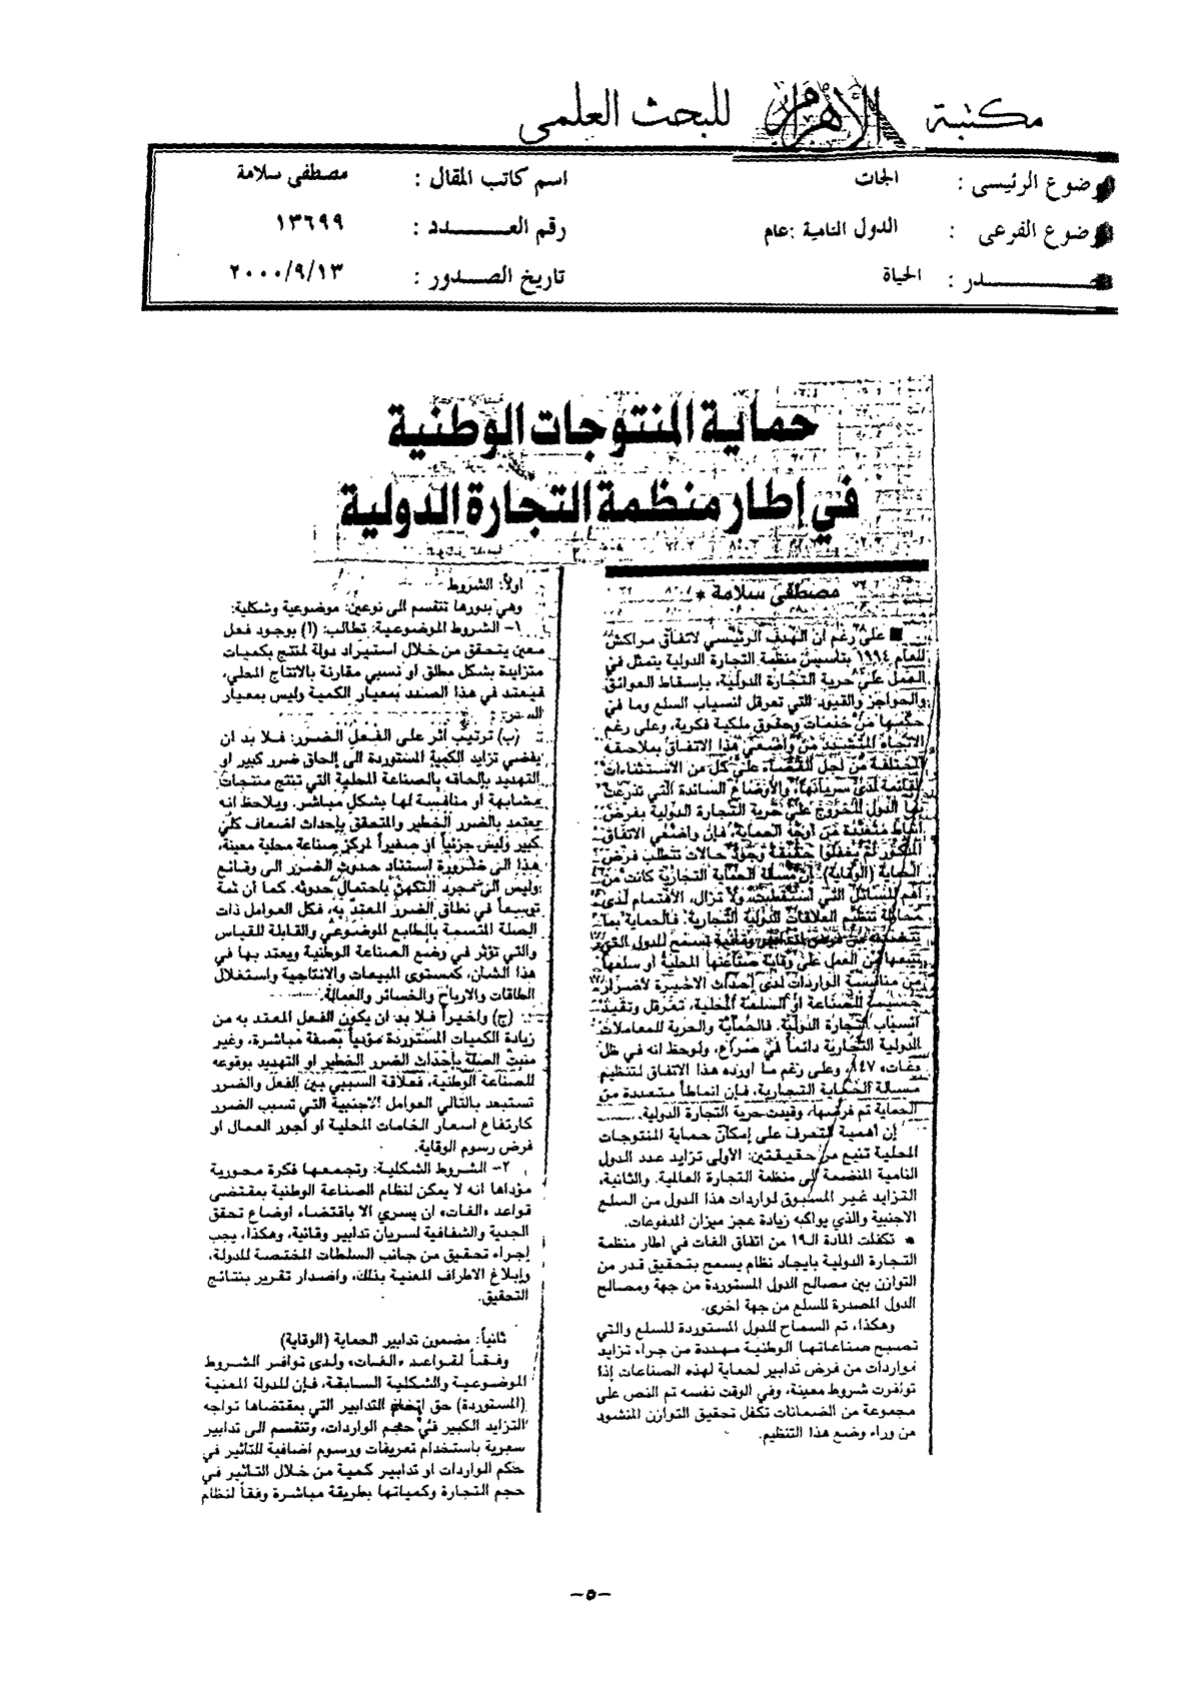 مكتبة الأهرام للبحث العلمى
وضوع الرئيسى : الجات
اسم كاتب المقال : مصطفى سلامة
وضوع الفرعى : الدول النامية :عام
رقم العــــدد : ١٣٦٩٩
ـــــدر : الحياة
تاريخ الصــدور : ٢٠٠٠/٩/١٣
حماية المنتوجات الوطنية
في إطار منظمة التجارة الدولية
مصطفى سلامة *
■ على رغم ان الهدف الرئيسي لاتفاق مراكش
للعام ١٩٩٤ بتاسيس منظمة التجارة الدولية يتمثل في
العمل على حرية التجارة الدولية، بإسقاط العوائق
والحواجز والقيود التي تعرقل انسياب السلع وما في
حكمها من خدمات وحقوق ملكية فكرية، وعلى رغم
الاتجاه المتشدد من واضعي هذا الاتفاق بملاحقه
المختلفة من اجل القضاء على كل من الاستثناءات
القائمة لدى سريانها، والأوضاع السائدة التي تذرعت
بها الدول للخروج على حرية التجارة الدولية بفرض
أنماط متعددة من أوجه الحماية، فإن واضعي الاتفاق
المذكور لم يغفلوا حقيقة وجود حالات تتطلب فرض
الحماية (الوقاية). إن مسألة الحماية التجارية كانت من
اهم المسائل التي استقطبت، ولا تزال، الاهتمام لدى
محاولة تنظيم العلاقات الدولية التجارية. فالحماية بما
تتضمنه من فرض وقائية تسمح للدول التي
تتبعها من العمل على وقاية صناعتها المحلية أو سلعها
من منافسة الواردات لدى إحداث الاخيرة لأضرار
جسيمة للصناعة او السلعة المحلية، تعرقل وتقيد
انسياب التجارة الدولية. فالحماية والحرية للمعاملات
الدولية التجارية دائماً في صراع، ولوحظ انه في ظل
«غات» ١٤٧، وعلى رغم ما اورده هذا الاتفاق لتنظيم
مسالة الحماية التجارية، فإن انماطاً متعددة من
الحماية تم فرضها، وقيدت حرية التجارة الدولية.
إن أهمية التعرف على إمكان حماية المنتوجات
المحلية تنبع من حقيقتين: الأولى تزايد عدد الدول
النامية المنضمة إلى منظمة التجارة العالمية. والثانية،
التزايد غير المسبوق لواردات هذا الدول من السلع
الاجنبية والذي يواكبه زيادة عجز ميزان المدفوعات.
* تكفلت المادة الـ١٩ من اتفاق الغات في اطار منظمة
التجارة الدولية بايجاد نظام يسمح بتحقيق قدر من
التوازن بين مصالح الدول المستوردة من جهة ومصالح
الدول المصدرة للسلع من جهة اخرى.
وهكذا، تم السماح للدول المستوردة للسلع والتي
تصبح صناعاتها الوطنية مهددة من جراء تزايد
واردات من فرض تدابير لحماية لهذه الصناعات إذا
توافرت شروط معينة، وفي الوقت نفسه تم النص على
مجموعة من الضمانات تكفل تحقيق التوازن المنشود
من وراء وضع هذا التنظيم.
اولاً: الشروط
وهي بدورها تنقسم الى نوعين: موضوعية وشكلية:
١- الشروط الموضوعية: تطالب: (ا) بوجود فعل
معين يتحقق من خلال استيراد دولة لمنتج بكميات
متزايدة بشكل مطلق أو نسبي مقارنة بالانتاج المحلي،
فيعتد في هذا الصدد بمعيار الكمية وليس بمعيار
(ب) ترتيب أثر على الفعل الضرر: فلا بد ان
يفضي تزايد الكمية المستوردة الى إلحاق ضرر كبير او
التهديد بإلحاقه بالصناعة المحلية التي تنتج منتجات
مشابهة أو منافسة لها بشكل مباشر. ويلاحظ انه
يعتمد بالضرر الخطير والمتحقق بإحداث اضعاف كلي
كبير وليس جزئياً او صغيراً لمركز صناعة محلية معينة،
هذا الى ضرورة استناد حدوث الضرر الى وقائع
وليس الى مجرد التكهن باحتمال حدوثه. كما أن ثمة
توسيعاً في نطاق الضرر المعتد به، فكل العوامل ذات
الصلة المتسمة بالطابع الموضوعي والقابلة للقياس
والتي تؤثر في وضع الصناعة الوطنية ويعتد بها في
هذا الشان، كمستوى المبيعات والانتاجية واستغلال
الطاقات والارباح والخسائر والعمالة.
(ج) واخيراً فلا بد ان يكون الفعل المعتد به من
زيادة الكميات المستوردة مؤدياً بصفة مباشرة، وغير
منبت الصلة بإحداث الضرر الخطير او التهديد بوقوعه
للصناعة الوطنية، فعلاقة السببي بين الفعل والضرر
تستبعد بالتالي العوامل الاجنبية التي تسبب الضرر
كارتفاع اسعار الخامات المحلية او أجور العمال او
فرض رسوم الوقاية.
٢- الشروط الشكلية: وتجمعها فكرة محورية
مؤداها انه لا يمكن لنظام الصناعة الوطنية بمقتضى
قواعد «الغات» ان يسري الا باقتضاء اوضاع تحقق
الجدية والشفافية لسريان تدابير وقائية، وهكذا، يجب
إجراء تحقيق من جانب السلطات المختصة للدولة،
وإبلاغ الاطراف المعنية بذلك، واصدار تقرير بنتائج
التحقيق.
ثانياً: مضمون تدابير الحماية (الوقاية)
وفقاً لقواعد «الغات» ولدى توافر الشروط
الموضوعية والشكلية السابقة، فإن للدولة المعنية
(المستوردة) حق إتخاذ التدابير التي بمقتضاها تواجه
التزايد الكبير في حجم الواردات، وتنقسم الى تدابير
سعرية باستخدام تعريفات ورسوم اضافية للتاثير في
حكم الواردات او تدابير كمية من خلال التاثير في
حجم التجارة وكمياتها بطريقة مباشرة وفقاً لنظام
-٥-